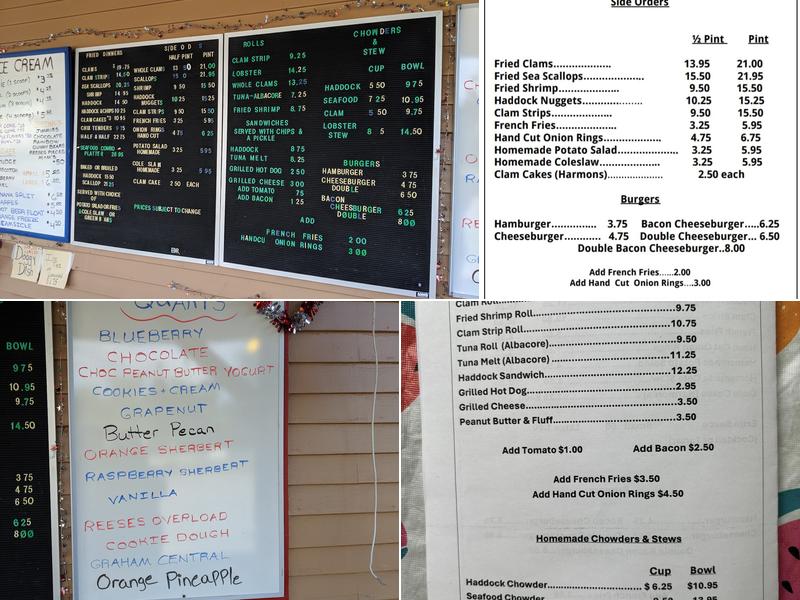 CE CREAM
FRIED DINNERS
SIDE O D S
HALF PINT PINT
WHOLE CLAMS
SCALLOPS
SHRIMP 9.50 15.50
HADDOCK NUGGETS 10.25 15.25
CLAM STRIPS 9.50 15.50
FRENCH FRIES 3.25 5.95
ONION RINGS HAND CUT 4.75 6.25
POTATO SALAD HOMEMADE 3.25 5.95
COLE SLAW HOMEMADE 3.25 5.95
CLAM CAKE 2.50 EACH
PRICES SUBJECT TO CHANGE
SEAFOOD COMBO PLATTER
BAKED OR BROILED
HADDOCK
SCALLOP
SERVED WITH CHOICE OF
ROLLS
CLAM STRIP 9.25
LOBSTER 14.25
WHOLE CLAMS 13.25
TUNA-ALBACORE 7.25
FRIED SHRIMP 8.75
SANDWICHES
SERVED WITH CHIPS &
A PICKLE
HADDOCK 8.75
TUNA MELT 8.25
GRILLED HOT DOG 2 50
GRILLED CHEESE 3 00
ADD TOMATO 75
ADD BACON 1 25
ADD
FRENCH FRIES 2 00
HANDCU ONION RINGS 3 00
CHOWDERS
&
STEW
CUP BOWL
HADDOCK 5 50 9 75
SEAFOOD 7 25 10.95
CLAM 5 50 9.75
LOBSTER STEW 8 5 14.50
BURGERS
HAMBURGER 3 75
CHEESEBURGER 4 75
DOUBLE 6 50
BACON
CHEESBURGER 6 25
DOUBLE 8 00
Doggy Dish
Side Orders
½ Pint Pint
Fried Clams.................... 13.95 21.00
Fried Sea Scallops..................... 15.50 21.95
Fried Shrimp.................... 9.50 15.50
Haddock Nuggets............... 10.25 15.25
Clam Strips.................... 9.50 15.50
French Fries..................... 3.25 5.95
Hand Cut Onion Rings.................... 4.75 6.75
Homemade Potato Salad.................... 3.25 5.95
Homemade Coleslaw..................... 3.25 5.95
Clam Cakes (Harmons)................... 2.50 each
Burgers
Hamburger............... 3.75 Bacon Cheeseburger.....6.25
Cheeseburger............ 4.75 Double Cheeseburger... 6.50
Double Bacon Cheeseburger..8.00
Add French Fries......2.00
Add Hand Cut Onion Rings....3.00
BOWL
9 75
10.95
9.75
14.50
3 75
4 75
6 50
6 25
8 00
QUARTS
BLUEBERRY
CHOCOLATE
CHOC PEANUT BUTTER YOGURT
COOKIES + CREAM
GRAPENUT
Butter Pecan
ORANGE SHERBERT
RASPBERRY SHERBERT
VANILLA
REESES OVERLOAD
COOKIE DOUGH
GRAHAM CENTRAL
Orange Pineapple
Clam Roll
Fried Shrimp Roll....................9.75
Clam Strip Roll....................10.75
Tuna Roll (Albacore)....................9.50
Tuna Melt (Albacore)....................11.25
Haddock Sandwich....................12.25
Grilled Hot Dog....................2.95
Grilled Cheese....................3.50
Peanut Butter & Fluff....................3.50
Add Tomato $1.00 Add Bacon $2.50
Add French Fries $3.50
Add Hand Cut Onion Rings $4.50
Homemade Chowders & Stews
Cup Bowl
Haddock Chowder.................... $ 6.25 $10.95
Seafood Chowder